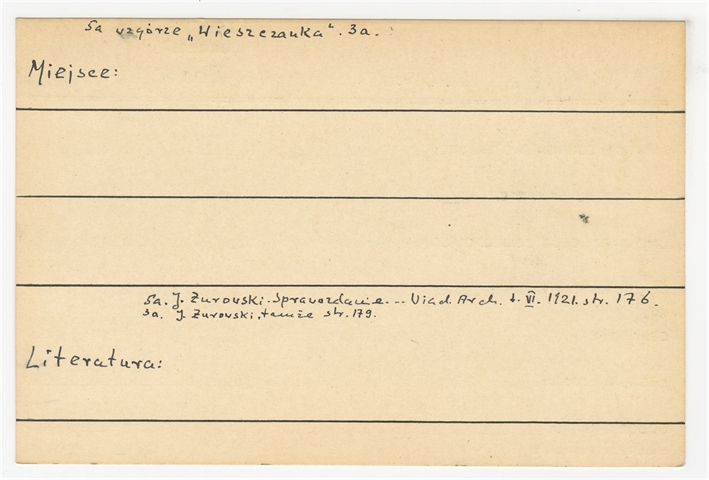 5a wzgórze „Wieszczanka“. 3a.
Miejsce:
5a. J. Żurowski. Sprawozdanie... Wiad. Arch. t. VI. 1921. str. 176.
3a. J. Żurowski, tamże str. 179.
Literatura: